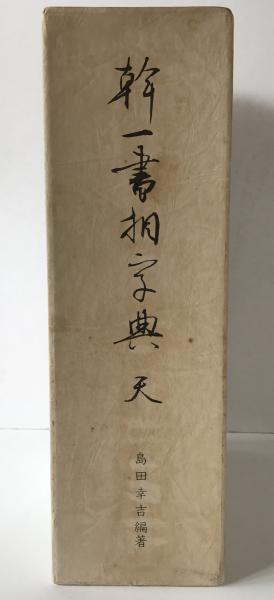 幹一書相字典 天
島田幸吉編著